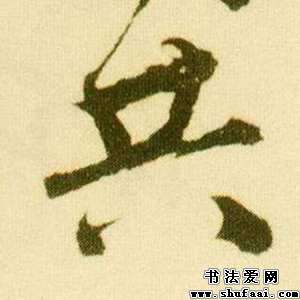 共
书法爱网
www.shufaai.com